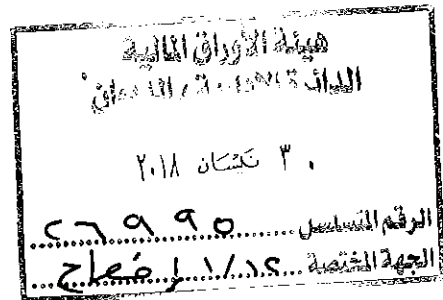 هيئة الأوراق المالية
الدائرة الإدارية / الديوان
٣٠ نيسان ٢٠١٨
الرقم المتسلسل ٢٦٩٩٥
الجهة المختصة ١٢/١/ إفصاح